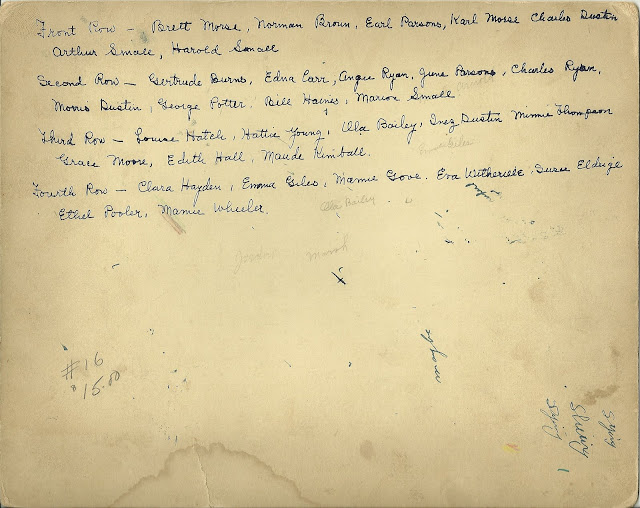 Front Row – Brett Morse, Norman Brown, Earl Parsons, Karl Morse Charles Dustin
Arthur Small, Harold Small
Second Row – Gertrude Burns, Edna Carr, Angie Ryan, June Parsons, Charles Ryan,
Morris Dustin, George Potter. Bill Haines, Marion Small
Third Row – Louise Hatch, Hattie Young, Ulla Bailey, Inez Dustin Minnie Thompson
Grace Moore, Edith Hall, Maude Kimball.
Fourth Row – Clara Hayden, Emma Giles, Mamie Gove. Eva Witherell. Susie
Ethel Pooler, Mamie Wheeler.
Bailey
#16
$15.00